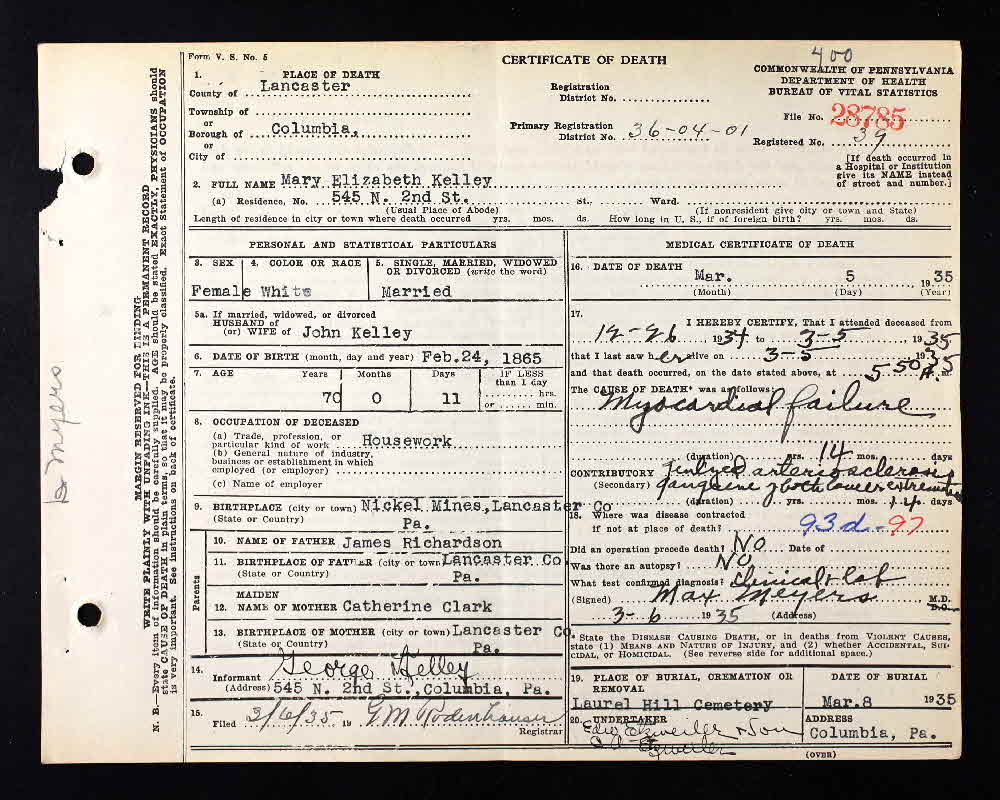 Form V. S. No. 5
CERTIFICATE OF DEATH
400
COMMONWEALTH OF PENNSYLVANIA
DEPARTMENT OF HEALTH
BUREAU OF VITAL STATISTICS
1. PLACE OF DEATH
County of Lancaster
Township of
or
Borough of Columbia.
or
City of
Registration
District No.
Primary Registration
District No. 36-04-01
File No. 28785
Registered No. 39
[If death occurred in
a Hospital or Institution
give its NAME instead
of street and number.]
2. FULL NAME Mary Elizabeth Kelley
(a) Residence, No. 545 N. 2nd St. St., Ward.
(Usual Place of Abode) (If nonresident give city or town and State)
Length of residence in city or town where death occurred yrs. mos. ds. How long in U. S., if of foreign birth? yrs. mos. ds.
PERSONAL AND STATISTICAL PARTICULARS
3. SEX 4. COLOR OR RACE 5. SINGLE, MARRIED, WIDOWED
OR DIVORCED (write the word)
Female White Married
5a. If married, widowed, or divorced
HUSBAND of
(or) WIFE of John Kelley
6. DATE OF BIRTH (month, day and year) Feb.24, 1865
7. AGE Years Months Days IF LESS
than 1 day
hrs.
70 0 11 or min.
8. OCCUPATION OF DECEASED
(a) Trade, profession, or
particular kind of work Housework
(b) General nature of industry,
business or establishment in which
employed (or employer)
(c) Name of employer
9. BIRTHPLACE (city or town) Nickel Mines, Lancaster Co
(State or Country) Pa.
Parents
10. NAME OF FATHER James Richardson
11. BIRTHPLACE OF FATHER (city or town) Lancaster Co
(State or Country) Pa.
MAIDEN
12. NAME OF MOTHER Catherine Clark
13. BIRTHPLACE OF MOTHER (city or town) Lancaster Co.
(State or Country) Pa.
14.
Informant George Kelley
(Address) 545 N. 2nd St., Columbia, Pa.
15.
Filed 3/6/35 19 G.M. Rodenhauser
Registrar
MEDICAL CERTIFICATE OF DEATH
16. DATE OF DEATH Mar. 5 1935
(Month) (Day) (Year)
17.
I HEREBY CERTIFY, That I attended deceased from
12-26 1934 to 3-5 1935
that I last saw her alive on 3-5 1935
and that death occurred, on the date stated above, at 5 50 A. m.
The CAUSE OF DEATH* was as follows:
Myocardial failure
(duration) yrs. 14 mos. days
CONTRIBUTORY arteriosclerosis
(Secondary) gangrene of both lower extremities
(duration) yrs. mos. 14 days
18. Where was disease contracted
if not at place of death? 93d-97
Did an operation precede death? No Date of
Was there an autopsy? No
What test confirmed diagnosis? Clinical & lab
(Signed) Max Meyers M.D.
D.O.
3-6 1935 (Address)
* State the DISEASE CAUSING DEATH, or in deaths from VIOLENT CAUSES,
state (1) MEANS AND NATURE OF INJURY, and (2) whether ACCIDENTAL, SUI-
CIDAL, or HOMICIDAL. (See reverse side for additional space.)
19. PLACE OF BURIAL, CREMATION OR
REMOVAL
Laurel Hill Cemetery
DATE OF BURIAL
Mar.8 1935
20. UNDERTAKER
Edw Etzweiler & Son
Etzweiler
ADDRESS
Columbia, Pa.
(OVER)
MARGIN RESERVED FOR BINDING
WRITE PLAINLY WITH UNFADING INK—THIS IS A PERMANENT RECORD
N. B.—Every item of information should be carefully supplied. AGE should be stated EXACTLY, PHYSICIANS should
state CAUSE OF DEATH in plain terms, so that it may be properly classified. Exact Statement of OCCUPATION
is very important. See instructions on back of certificate.
Myers